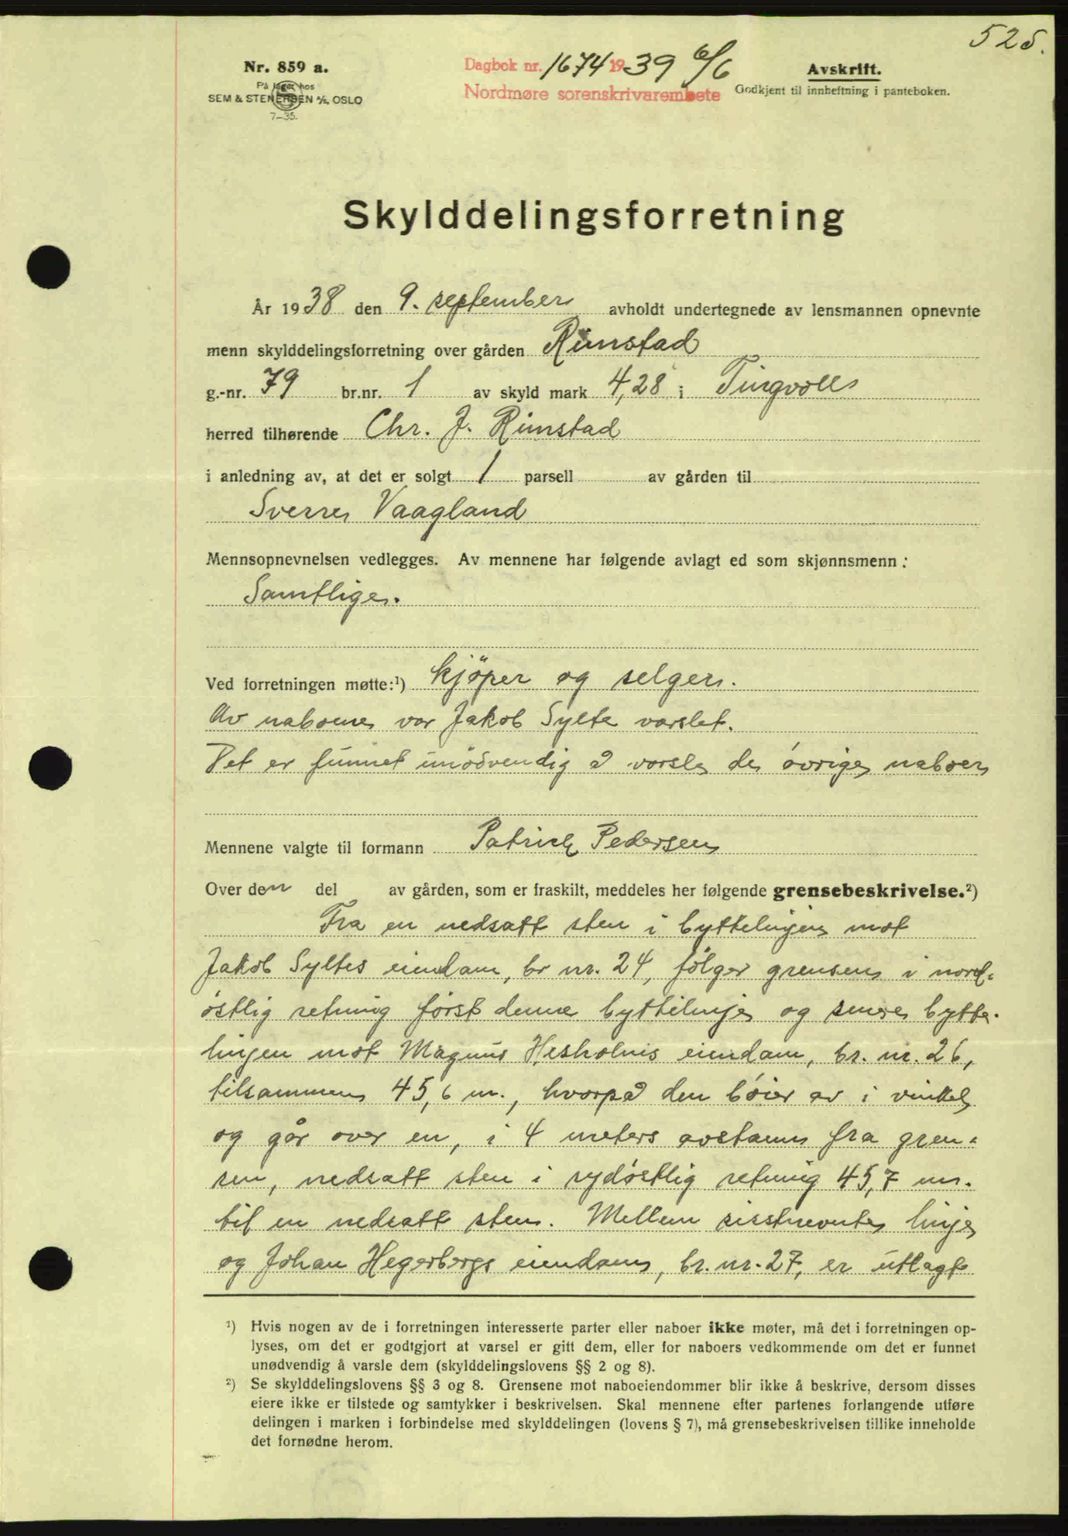 525.
Nr. 859 a.
På lager hos
SEM & STENERSEN A/S, OSLO
7-35.
Dagbok nr. 1674 1939 6/6
Nordmøre sorenskrivarembete
Avskrift.
Godkjent til innheftning i panteboken.
Skylddelingsforretning
År 1938 den 9. september avholdt undertegnede av lensmannen opnevnte
menn skylddelingsforretning over gården Rimstad
g.-nr. 79 br.nr. 1 av skyld mark 4,28 i Tingvoll
herred tilhørende Chr. J. Rimstad
i anledning av, at det er solgt 1 parsell av gården til
Sverre Vaagland
Mennsopnevnelsen vedlegges. Av mennene har følgende avlagt ed som skjønnsmenn:
Samtlige.
Ved forretningen møtte:¹) kjöper og selger.
Av naboene var Jakob Sylte varslet.
Det er funnet unödvendig å varsle de övrige naboer
Mennene valgte til formann Patrick Pedersen
Over den del av gården, som er fraskilt, meddeles her følgende grensebeskrivelse.²)
Fra en nedsatt sten i byttelinjen mot
Jakob Syltes eiendom, br nr. 24, fölger grensen i nord-
östlig retning först denne byttelinje og senere bytte-
linjen mot Magnus Hesholms eiendom, br. nr. 26,
tilsammen 45,6 m., hvorpå den böier av i vinkel
og går over en, i 4 meters avstann fra gren-
sen, nedsatt sten i sydöstlig retning 45,7 m.
til en nedsatt sten. Mellem sisstnevnte linje
og Johan Hegerbergs eiendom, br. nr. 27, er utlagt
¹) Hvis nogen av de i forretningen interesserte parter eller naboer ikke møter, må det i forretningen op-
lyses, om det er godtgjort at varsel er gitt dem, eller for naboers vedkommende om det er funnet
unødvendig å varsle dem (skylddelingslovens §§ 2 og 8).
²) Se skylddelingslovens §§ 3 og 8. Grensene mot naboeiendommer blir ikke å beskrive, dersom disses
eiere ikke er tilstede og samtykker i beskrivelsen. Skal mennene efter partenes forlangende utføre
delingen i marken i forbindelse med skylddelingen (lovens § 7), må grensebeskrivelsen tillike inneholde
det fornødne herom.